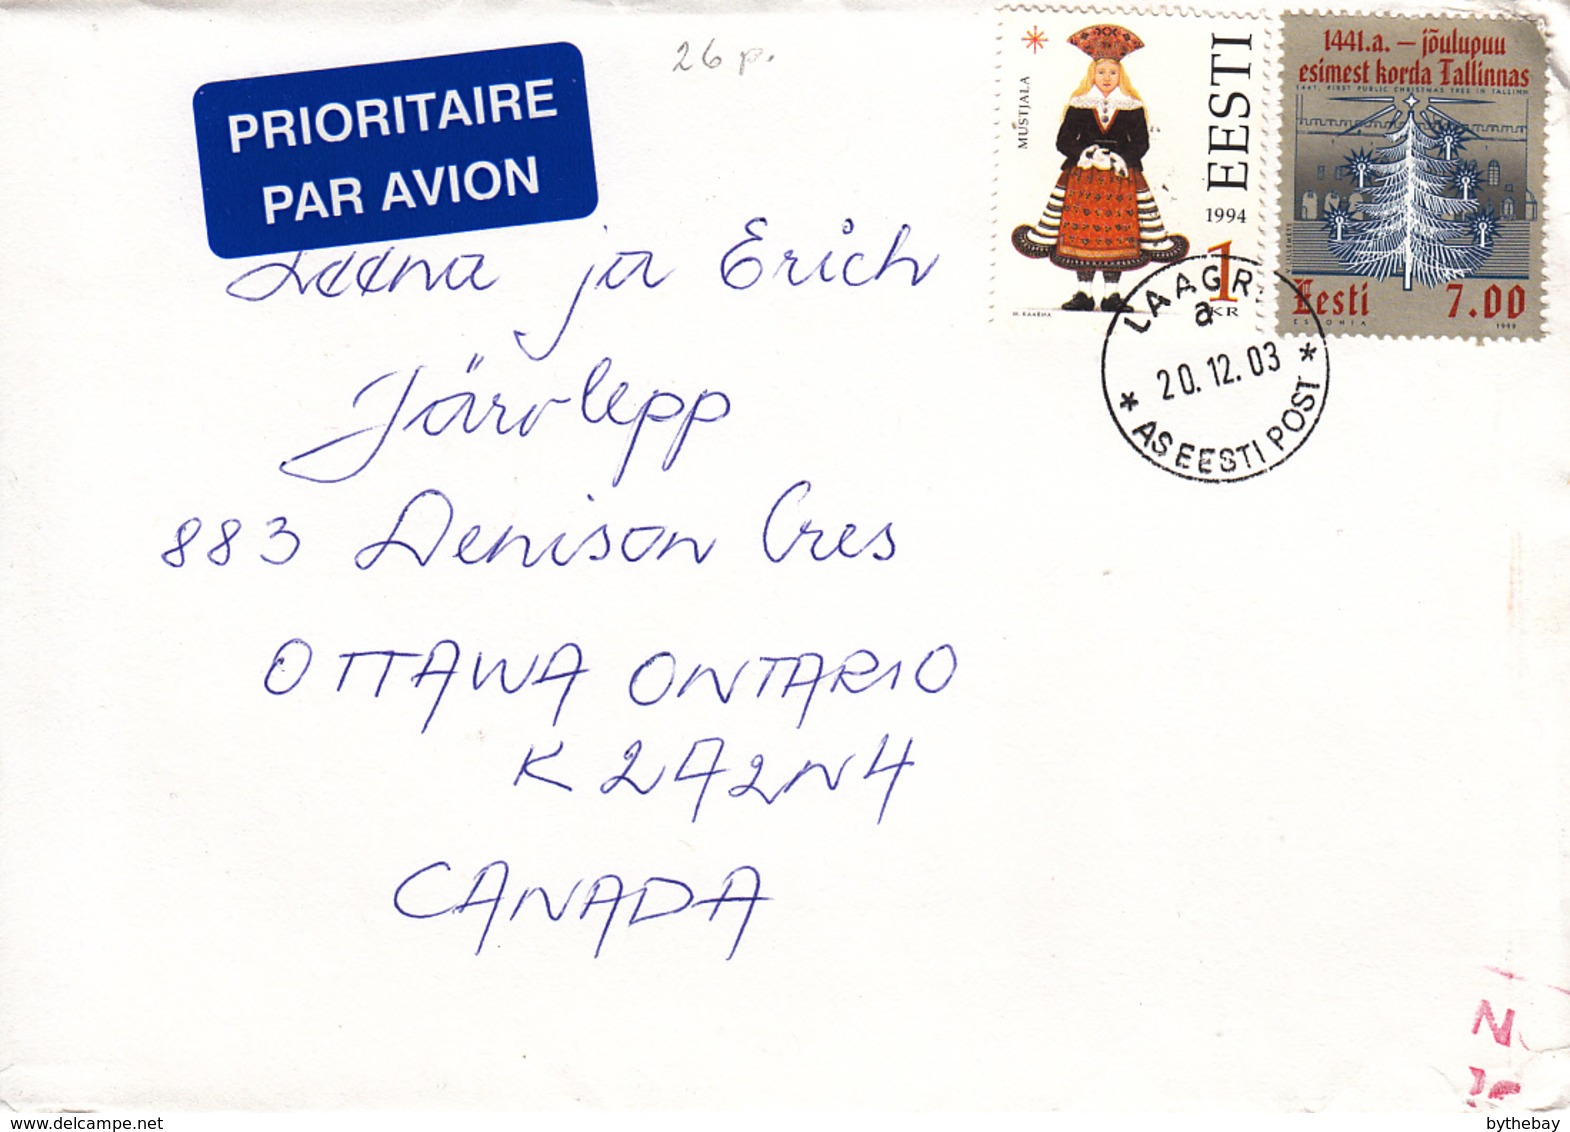 26 p.
PRIORITAIRE
PAR AVION
MUSTJALA
EESTI
1994
1
KR
M. KAARMA
1441.a. – jõulupuu
esimest korda Tallinnas
1441, FIRST PUBLIC CHRISTMAS TREE IN TALLINN
Eesti 7.00
ESTONIA 1999
LAAGRI
a
20.12.03
* AS EESTI POST *
Leena ja Erich
Järvlepp
883 Denison Cres
OTTAWA ONTARIO
K2A2N4
CANADA
bythebay